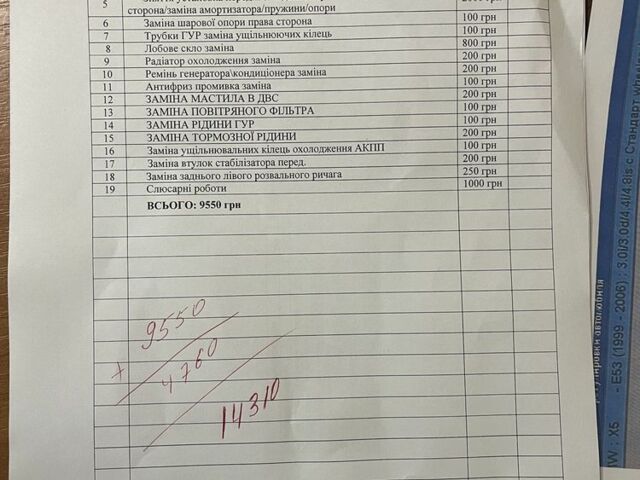 5
сторона/заміна амортизатора/пружини/опори
6 Заміна шарової опори права сторона 100 грн
7 Трубки ГУР заміна ущільнюючих кілець 100 грн
8 Лобове скло заміна 800 грн
9 Радіатор охолодження заміна 200 грн
10 Ремінь генератора\кондиціонера заміна 200 грн
11 Антифриз промивка заміна 100 грн
12 ЗАМІНА МАСТИЛА В ДВС 200 грн
13 ЗАМІНА ПОВІТРЯНОГО ФІЛЬТРА 100 грн
14 ЗАМІНА РІДИНИ ГУР 100 грн
15 ЗАМІНА ТОРМОЗНОЇ РІДИНИ 200 грн
16 Заміна ущільнювальних кілець охолодження АКПП 100 грн
17 Заміна втулок стабілізатора перед. 200 грн
18 Заміна заднього лівого розвального ричага 250 грн
19 Слюсарні роботи 1000 грн
ВСЬОГО: 9550 грн
9550
+ 4760
14310
: X5 - E53 (1999 - 2006) : 3.0i/3.0d/4.4i/4.8is с Стандарт